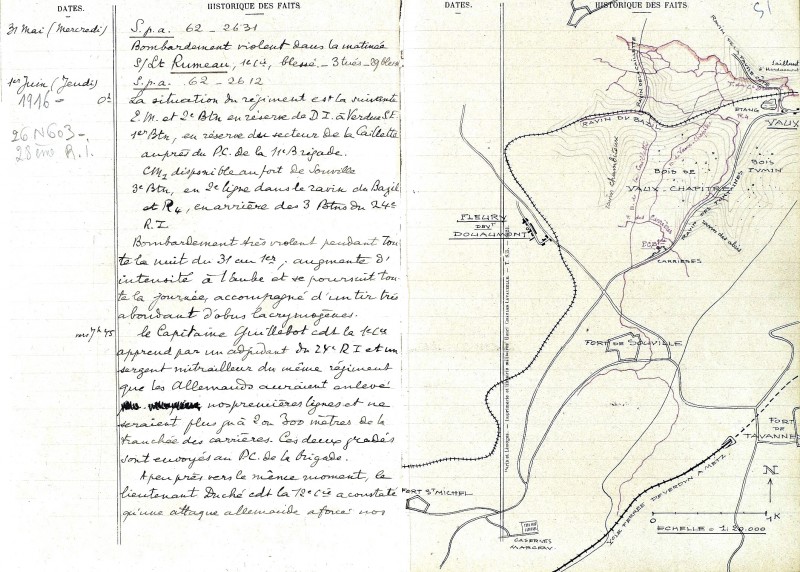 DATES. HISTORIQUE DES FAITS
31 Mai (Mercredi)
S.p.a. 62 - 2631
Bombardement violent dans la matinée
S/Lt Rumeau, 1e Cie, blessé. 3 tués - 29 bless
1er Juin (Jeudi)
S.p.a. 62 - 2612
1916 - 0h
La situation du régiment est la suivante
26 N603 -
28ème R.I.
E.M. et 2e Btn en réserve de D.I. à Verdun S.E.
1er Btn, en réserve du secteur de la Caillette
auprès du P.C. de la 11e Brigade.
CM2 disponible au fort de Souville
3e Btn, en 2e ligne dans le ravin du Bazil
et R4, en arrière des 3 Btns du 24e
R.I.
Bombardement très violent pendant tou-
te la nuit du 31 au 1er; augmente d'
intensité à l'aube et se poursuit tou-
te la journée, accompagné d'un tir très
abondant d'obus lacrymogènes.
vers 7h 45
le Capitaine Guillebot cdt la 1e Cie
apprend par un adjudant du 24e R I et un
sergent mitrailleur du même régiment
que les Allemands auraient enlevé
nos premières lignes et ne
seraient plus qu'à 2 ou 300 mètres de la
tranchée des carrières. Ces deux gradés
sont envoyés au P.C. de la brigade.
A peu près vers le même moment, le
lieutenant Duché cdt la 12e Cie a constaté
qu'une attaque allemande a forcé nos
DATES. HISTORIQUE DES FAITS
51
Saillant
d'Hardaumont
RAVIN DE LA CAILLETTE
ETANG
R4
VAUX
RAVIN DU BAZIL
BOIS DE
VAUX-CHAPITRE
BOIS
FUMIN
FLEURY
DEVT
DOUAUMONT
CARRIÈRES
FORT DE SOUVILLE
FORT
DE
TAVANNE
N
FORT ST MICHEL
CASERNES
MARCEAU
VOIE FERRÉE DE VERDUN A METZ
0 1K
ECHELLE = 1:20.000